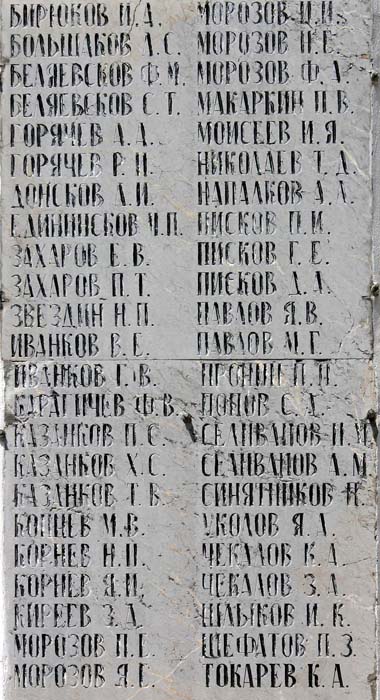 БИРЮКОВ П.А.
БОЛЬШАКОВ А.С.
БЕЛЯЕВСКОВ Ф.М.
БЕЛЯЕВСКОВ С.Т.
ГОРЯЧЕВ А.А.
ГОРЯЧЕВ Р.И.
ДОНСКОВ А.И.
ЕДИНИНСКОВ Ч.П.
ЗАХАРОВ Е.В.
ЗАХАРОВ П.Т.
ЗВЕЗДИН Н.П.
ИВАНКОВ В.Е.
ИВАНКОВ Г.В.
КАРАГИЧЕВ Ф.В.
КАЗАНКОВ П.С.
КАЗАНКОВ Х.С.
КАЗАНКОВ Т.В.
КОННЕВ М.В.
КОРНЕВ Н.П.
КОРНЕВ Я.И.
КИРЕЕВ З.Д.
МОРОЗОВ П.Е.
МОРОЗОВ Я.Е.
МОРОЗОВ
МОРОЗОВ П.Е.
МОРОЗОВ Ф.А.
МАКАРКИН П.В.
МОИСЕЕВ И.Я.
НИКОЛАЕВ Т.Д.
НАПАЛКОВ А.А.
ПИСКОВ П.И.
ПИСКОВ Г.Е.
ПИСКОВ Д.А.
ПАВЛОВ Я.В.
ПАВЛОВ М.Г.
ПРОНИН П.П.
ПОПОВ С.Д.
СЕЛИВАНОВ И.М.
СЕЛИВАНОВ А.М.
СИНЯТНИКОВ Н.
УКОЛОВ Я.А.
ЧЕКАЛОВ К.А.
ЧЕКАЛОВ З.А.
ШЛЫКОВ И.К.
ЩЕФАТОВ П.З.
ТОКАРЕВ К.А.